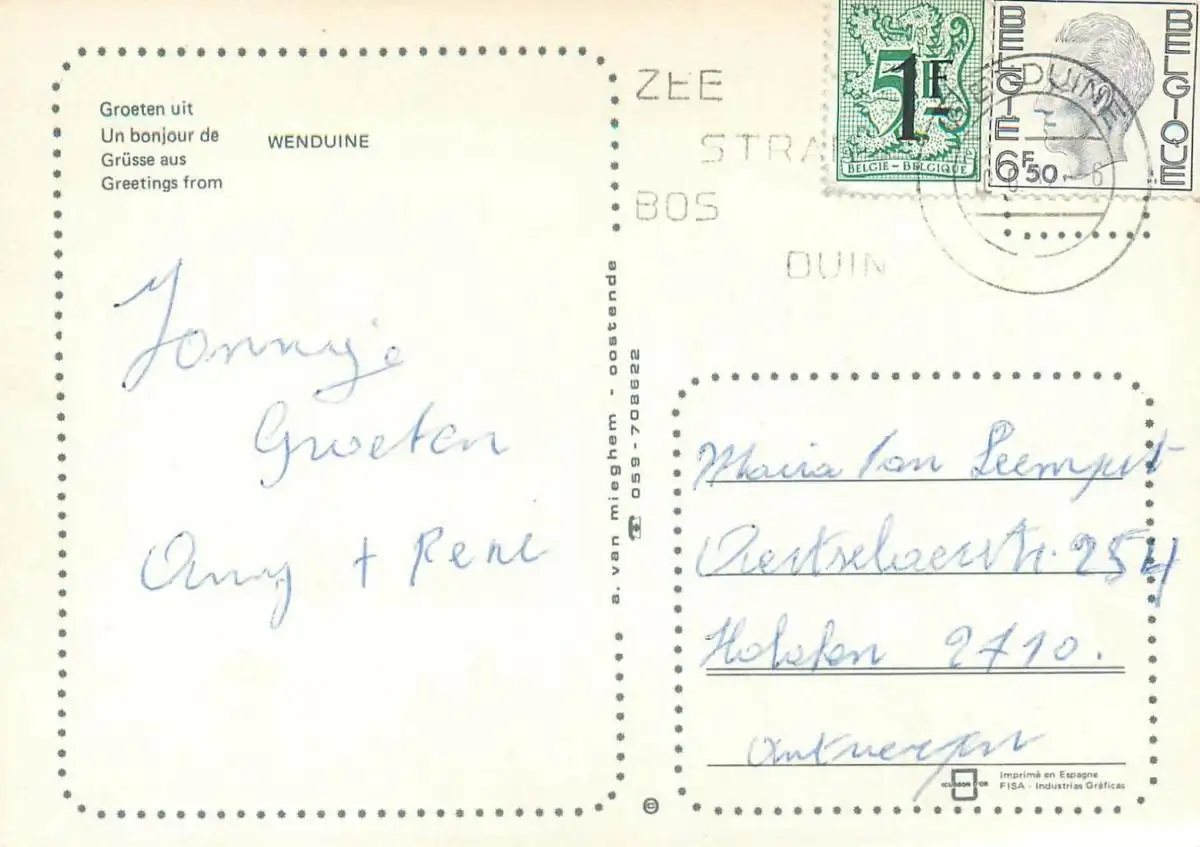 Groeten uit
Un bonjour de
Grüsse aus
Greetings from
WENDUINE
Groeten
Anny + René
a. van mieghem - oostende
☎ 059-708622
ZEE
STRA
BOS
DUIN
5 1F
BELGIE - BELGIQUE
BELGIE
BELGIQUE
6F50
WENDUINE
Maria Van Leemput
254
2710.
Antwerpen
©
Imprimé en Espagne
FISA - Industrias Gráficas